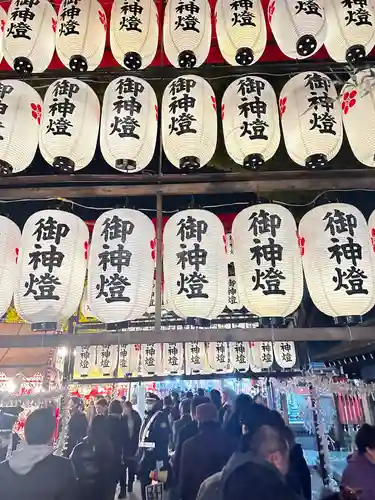 御神燈
御神燈
御神燈
御神燈
御神燈
御神燈
御神燈
御神燈
御神燈
御神燈
御神燈
御神燈
御神燈
御神燈
御神燈
御神燈
御神燈
御神燈